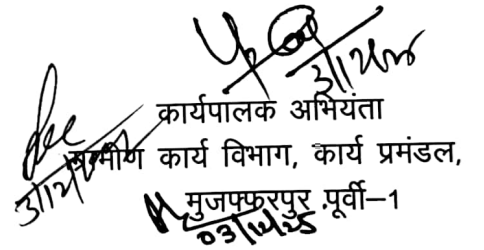 कार्यपालक अभियंता
ग्रामीण कार्य विभाग, कार्य प्रमंडल,
मुजफ्फरपुर पूर्वी–1
03/12/25